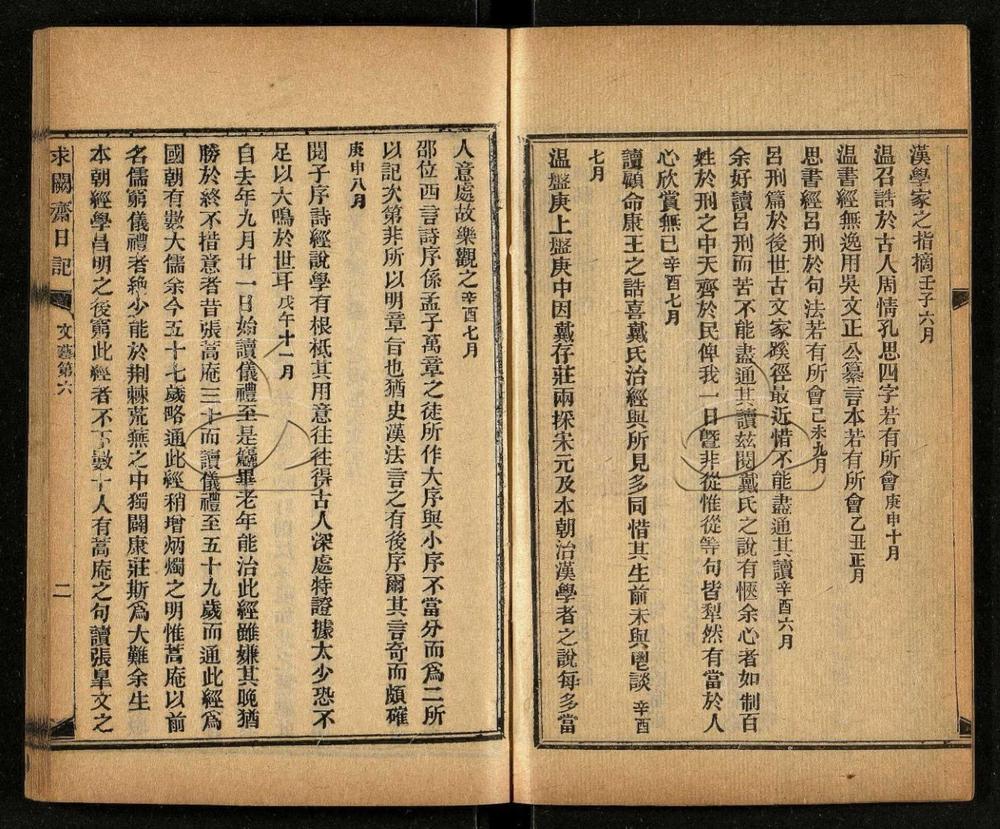 漢學家之指摘壬子六月
温召誥於古人周情孔思四字若有所會庚申十月
温書經無逸用吳文正公纂言本若有所會乙丑正月
思書經呂刑於句法若有所會己未九月
呂刑篇於後世古文家蹊徑最近惜不能盡通其讀辛酉六月
余好讀呂刑而苦不能盡通其讀兹閱戴氏之說有愜余心者如制百
姓於刑之中天齊於民俾我一日曁非從惟從等句皆犁然有當於人
心欣賞無已辛酉七月
讀顧命康王之誥喜戴氏治經與所見多同惜其生前未與鬯談辛酉
七月
温盤庚上盤庚中因戴存莊兩探宋元及本朝治漢學者之說每多當
人意處故樂觀之辛酉七月
邵位西言詩序係孟子萬章之徒所作大序與小序不當分而爲二所
以記次第非所以明章旨也猶史漢法言之有後序爾其言奇而頗確
庚申八月
閱子序詩經說學有根柢其用意往往得古人深處特證據太少恐不
足以大鳴於世耳戊午十一月
自去年九月廿一日始讀儀禮至是粗畢老年能治此經雖嫌其晚猶
勝於終不措意者昔張蒿庵三十而讀儀禮至五十九歲而通此經爲
國朝有數大儒余今五十七歲略通此經稍增炳燭之明惟蒿庵以前
名儒窮儀禮者絶少能於荆棘荒蕪之中獨闢康莊斯爲大難余生
本朝經學昌明之後窮此經者不下數十人有蒿庵之句讀張臯文之
求闕齋日記
文藝第六
二